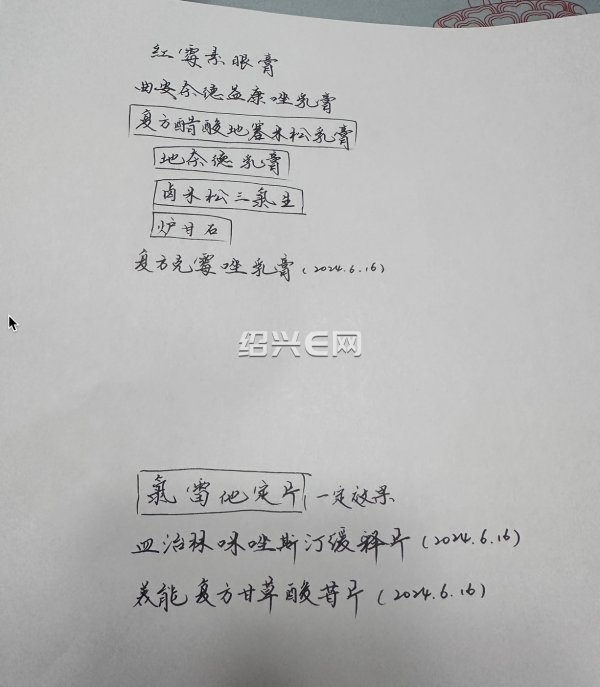 红霉素眼膏
曲安奈德益康唑乳膏
复方醋酸地塞米松乳膏
地奈德乳膏
卤米松三氯生
炉甘石
复方克霉唑乳膏(2024.6.16)
绍兴E网
氯雷他定片 一定效果
皿治林咪唑斯汀缓释片(2024.6.16)
美能复方甘草酸苷片(2024.6.16)